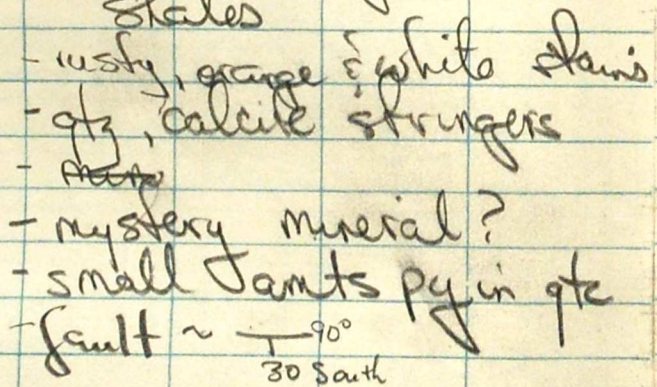 shales
- rusty, orange & white stains
- qtz, calcite stringers
-
- mystery mineral?
- small amts py in qtz
- fault ~ 90°
30 South